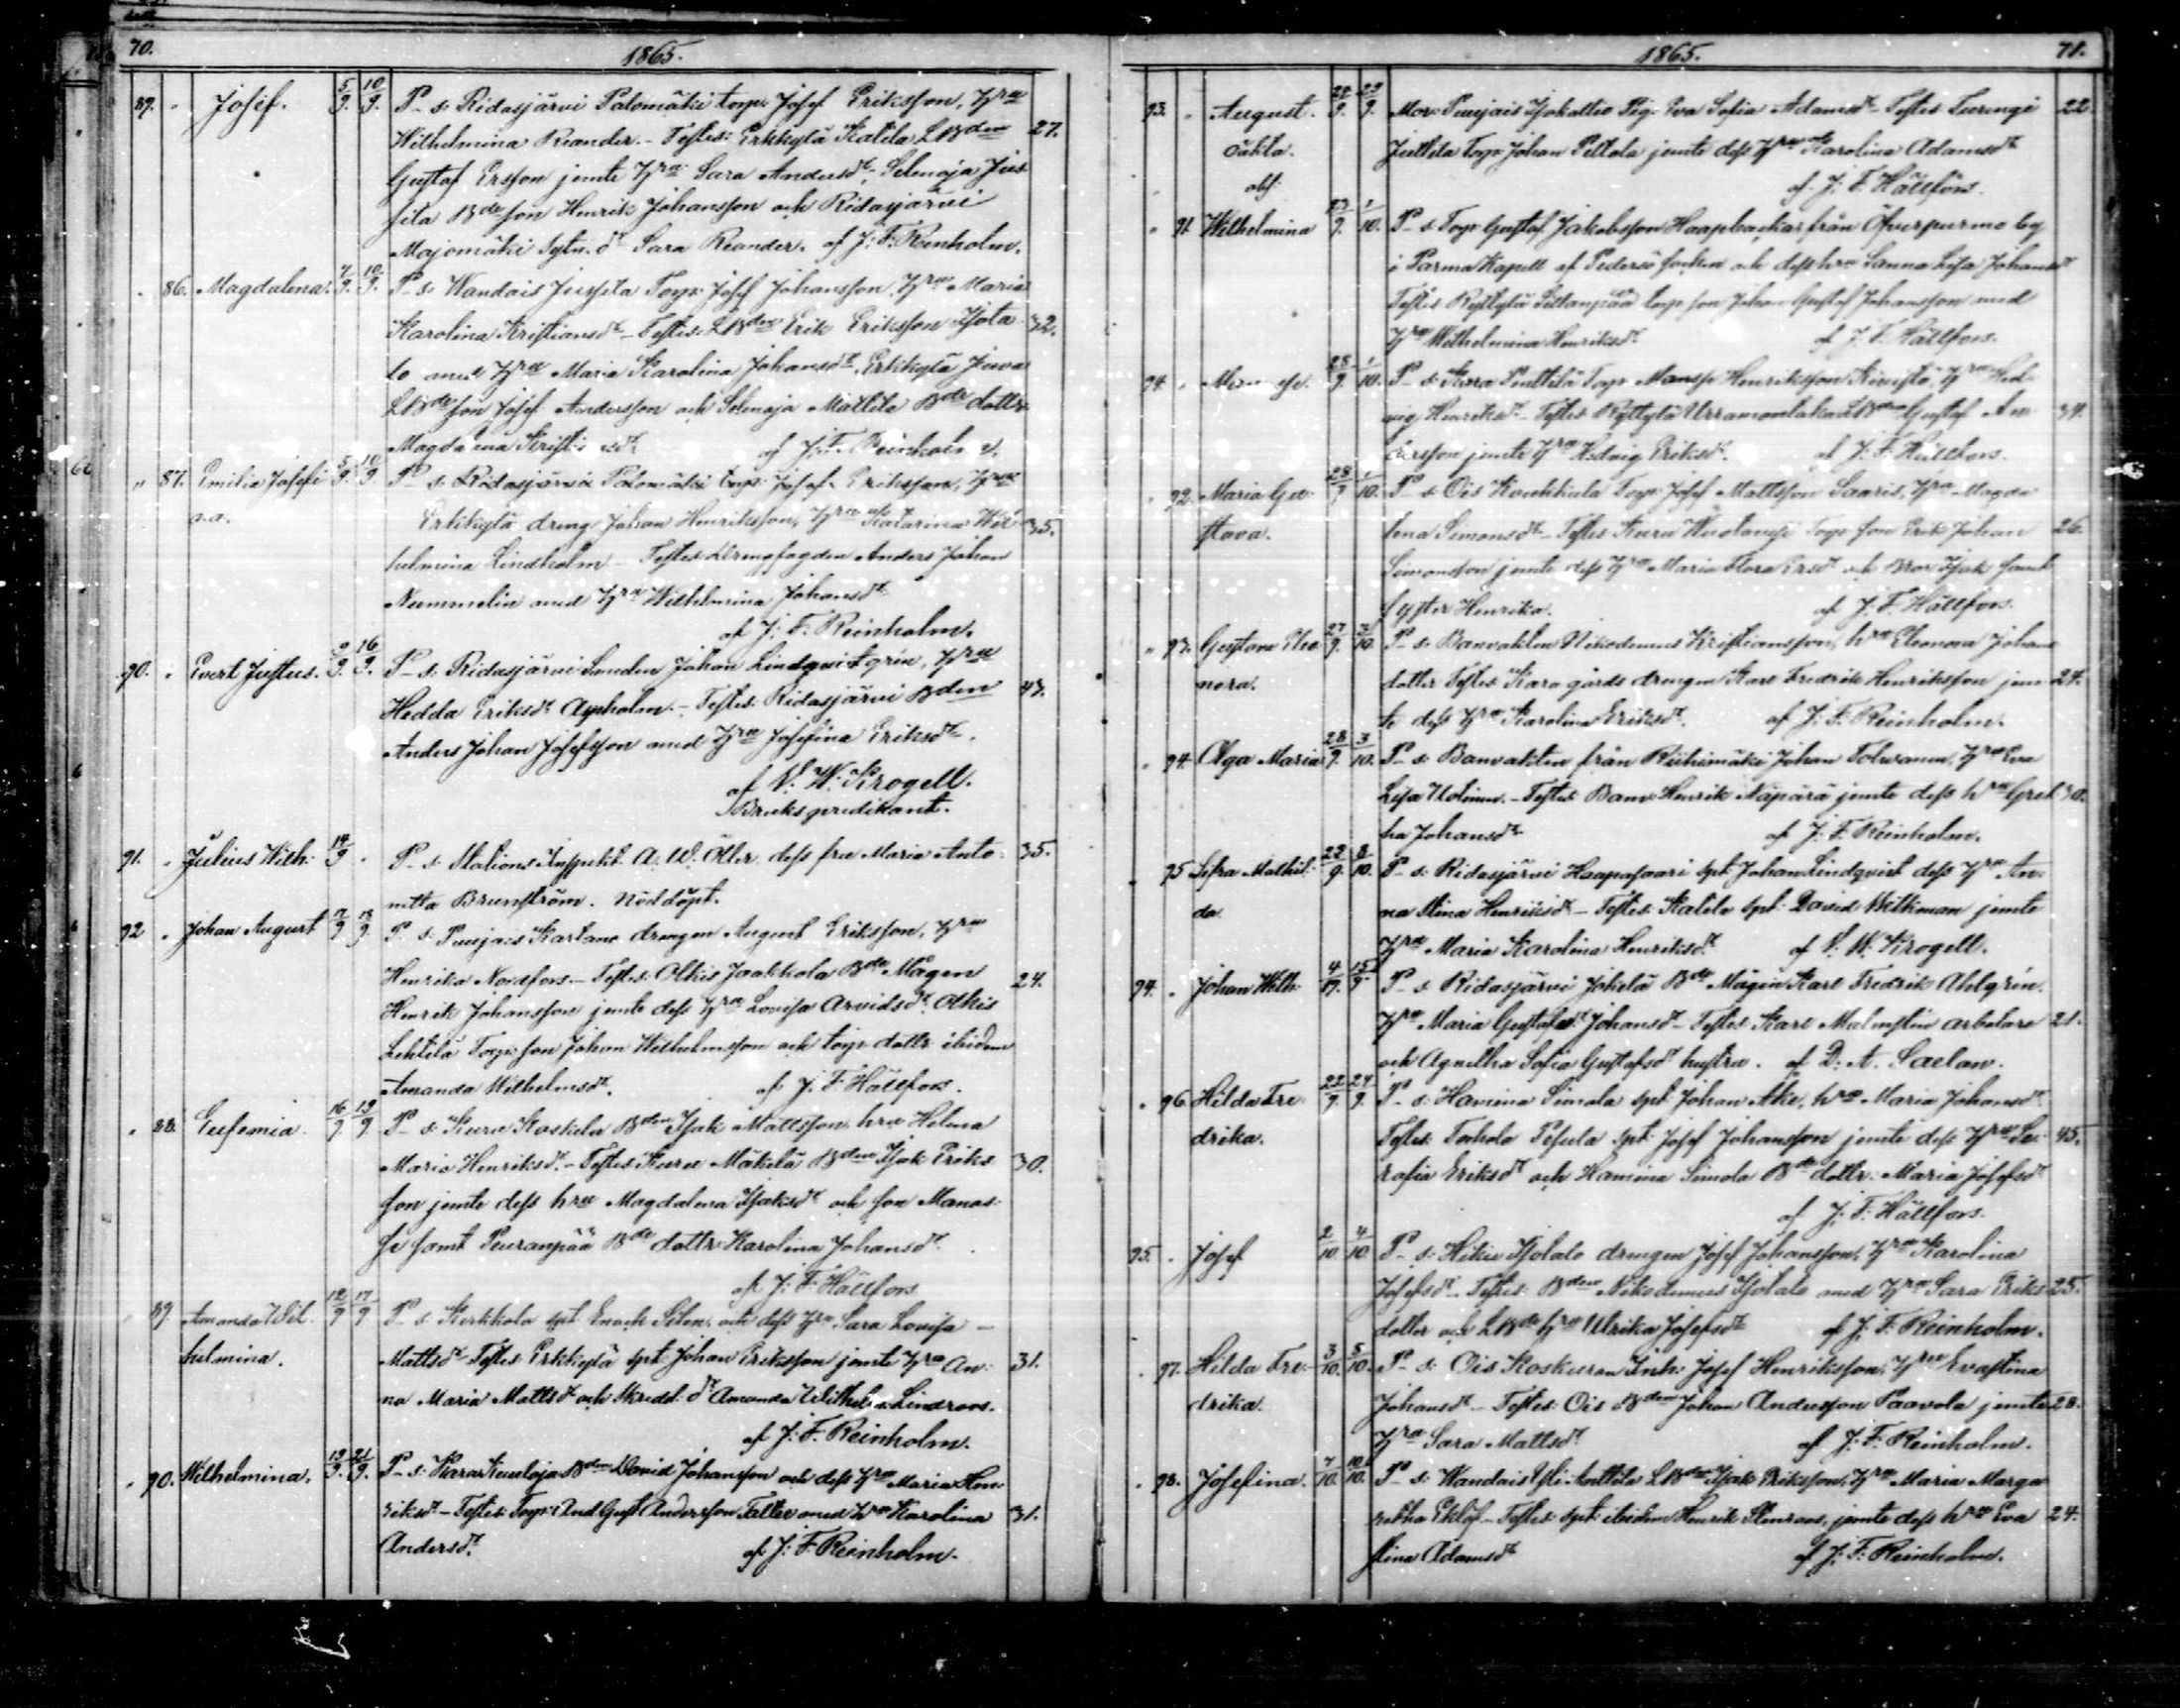 70.
1865.
89. " Josef. 5/9. 10/9. P. s. Ridasjärvi Palomäki torp. Josef Eriksson, Hru
Wilhelmina Reander. – Testes: Erkkylä Katila LBden 27.
Gustaf Ersson jemte Hru Sara Andersdr. Selmaja Jus
sila Bde son Henrik Johansson och Ridasjärvi
Majomäki Sytn. dr Sara Reander. af J. F. Reinholm.
" 86. Magdalena. 7/9. 10/9. P. s. Wandais Jussila Torp. Josef Johansson, Hru Maria
Karolina Kristiansdr – Testes: LBden Erik Eriksson Isota 32.
lo med Hru Maria Karolina Johansdr, Erkkylä
LBde son Josef Andersson och Selmaja Mattila Bde dottr
Magdalena af J. F. Reinholm.
" 87. Emilia Josefi 5/9. 10/9. P. s. Ridasjärvi Palomäki torp. Josef Eriksson, Hru
na. Erkkylä dreng Johan Henriksson, Hru Katarina Wil 35.
helmina Lindholm – Testes Anders Johan
Nummelin med Hru Wilhelmina Johansdr.
af J. F. Reinholm.
90. " Evert Justus. 9/9. 16/9. P. s. Ridasjärvi Johan, Hru
Hedda Eriksdr – Testes: Ridasjärvi Bden 43.
Anders Johan Josefsson med Hru Josefina Eriksdr.
af V. W. Krogell.
Brukspredikant.
91. " Julius Wilh. 14/9 " P. s. Stations Inspekt. A. W. Öller, dess fru Maria Anto- 35.
netta Brunström. Nöddöpt.
92 " Johan August 17/9 18/9. P. s. Puujais drengen August Eriksson, Hru
Henrika Nordfors. – Testes: Olkis Jaakkola Bde Mågen 24.
Henrik Johansson jemte dess Hru Lovisa Arvidsdr, Olkis
Lehtilä Torp. son Johan Wilhelmsson och torp. dottr ibidem
Amanda Wilhelmsdr. af J. F. Hällfors.
" 88. Eufemia. 16/9 19/9 P. s. Kuru Koskela Bden Isak Mattsson, hru Helena
Maria Henriksdr. – Testes Kuru Mäkelä Bden Isak Eriks 30.
son jemte dess hru Magdalena Isaksdr och son Manas-
se samt Peuranpää Bde dottr Karolina Johansdr.
af J. F. Hällfors
89 Amanda Wil 12/9 17/9 P. s. Kerkkola spt. Enock och dess Hru Sara Lovisa –
helmina. Mattsdr Testes Erkkylä spt. Johan Eriksson jemte Hru An- 31.
na Maria Mattsdr och Skredd. dr Amanda Wilhelmina Lindroos.
af J. F. Reinholm.
" 90. Wilhelmina. 19/9. 21/9. P. s. Karas Bden David Johansson och dess Hru Maria Hen-
riksdr – Testes Torp. And. Gust. Andersson med Hru Karolina 31.
Andersdr. af J. F. Reinholm.
1865.
71.
93. " August. 22/9. 29/9. Mor: Puujais Isokallio Pig. Eva Sofia Adamsdr – Testes Turengi 22
oäkta. Torp. Johan Peltola jemte dess Hru Karolina Adamsdr
af J. F. Hällfors.
" 91 Wilhelmina 23/9. 1/10. P. s. Torp. Gustaf Jakobsson Haapbackas från Öfverpurmo by
i Purmo Kapell af Pedersö socken och dess hru Sanna Lisa Johansdr
Testes Ryttylä torp. son Johan Gustaf Johansson med
Hru Wilhelmina Henriksdr. af J. F. Hällfors.
94. " 28/9. 1/10. P. s. Kara Penttilä Torp. Henriksson, Hru Hed-
vig Henriksdr – Testes Ryttylä LBden Gustaf An- 34.
dersson jemte Hru Hedvig Eriksdr. af J. F. Hällfors.
" 92. Maria Gu- 28/9 1/10. P. s. Ois Torp. Josef Mattsson Saaris, Hru Magda
stava. lena Simonsdr – Testes Kuru Torp. son Erik Johan 26.
Simonsson jemte dess Hru Maria Flora Ersdr och Bror Isak samt
Syster Henrika. af J. F. Hällfors.
" 93. Gustava Eleo 27/9. 2/10. P. s. Banvakten Nikodemus Kristiansson, hru Eleonora Johans
nora. dotter Testes Kara gårds drengen Karl Fredrik Henriksson jem- 27.
te dess Hru Karolina Eriksdr. af J. F. Reinholm.
" 94. Olga Maria 28/9. 3/10. P. s. Banvakten från Riihimäki Johan Tolvanen, Hru Eva
Lisa – Testes Banv. Henrik Näpärä jemte dess hru Gret 30.
ha Johansdr af J. F. Reinholm.
" 95 Mathil- 22/9. 8/10. P. s. Ridasjärvi Haapasaari spt. Johan Lindqvist dess Hru An-
da na Stina Henriksdr – Testes: Katila spt. David Wilkman jemte
Hru Maria Karolina Henriksdr. af V. W. Krogell.
94. " Johan Wilh. 4/9. 15/9. P. s. Ridasjärvi Jokela Bde Mågen Karl Fredrik Ahlgrén,
Hru Maria Johansdr – Testes Karl Malmstén arbetare 21.
och Agnetha Sofia Gustafsdr hustru. af D. A. Saelan.
" 96 Hilda Fre- 22/9. 24/9. P. s. Hamina Simola spt. Johan Ake, hru Maria Johansdr.
drika. Testes Torhola spt. Josef Johansson jemte dess Hru Se- 45.
rafia Eriksdr och Hamina Simola Bde dottr. Maria Josefsdr
af J. F. Hällfors.
95. " Josef 2/10. 4/10. P. s. Hikie Isotalo drengen Josef Johansson, Hru Karolina
Josefsdr. Testes. Bden Nikodemus Isotalo med Hru Sara Eriks 25.
dotter och LBde hru Ulrika Josefsdr af J. F. Reinholm.
" 97. Hilda Fre- 3/10. 8/10. P. s. Ois Inh. Josef Henriksson, Hru Evastina
drika. Johansdr. – Testes: Ois Bden Johan Andersson Paavola jemte 28.
Hru Sara Mattsdr. af J. F. Reinholm.
" 98. Josefina. 7/10. 10/10. P. s. Wandais Yli-Anttila LBden Isak Eriksson, Hru Maria Marga
retha Eklöf – Testes: spt. ibidem Henrik Stenroos, jemte dess hru Eva 24.
stina Adamsdr af J. F. Reinholm.